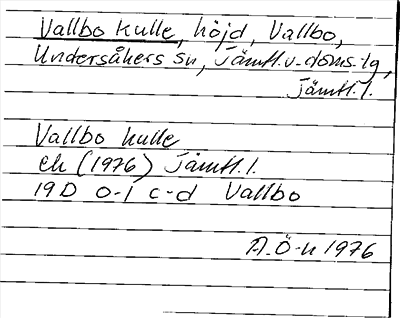 Vallbo kulle, höjd, Vallbo,
Undersåkers sn, Jämtl. v. doms. lg,
Jämtl. l.
Vallbo kulle
ek (1976) Jämtl. l.
19D 0-1 c-d Vallbo
A. Ö-n 1976